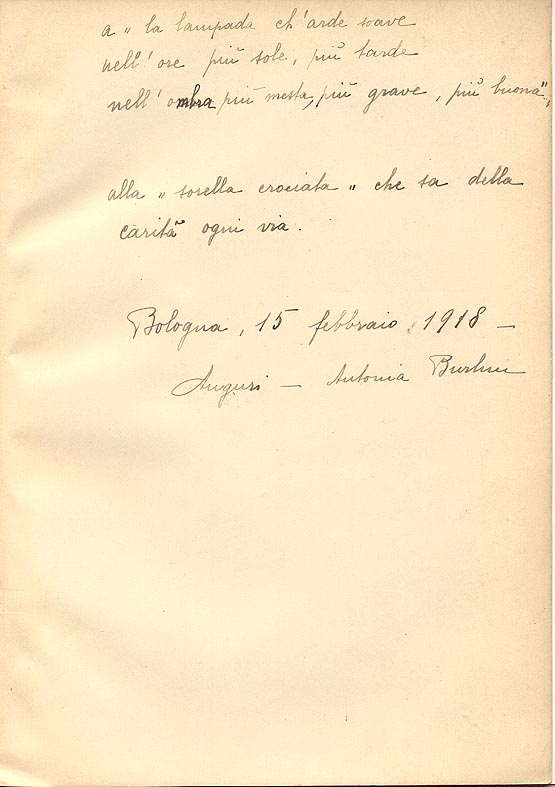 a „ la lampada ch'arde soave
nell'ore più sole, più tarde
nell'ombra più mesta, più grave, più buona",
alla „ sorella crociata „ che sa della
carità ogni via.
Bologna, 15 febbraio, 1918 —
Auguri — Antonia